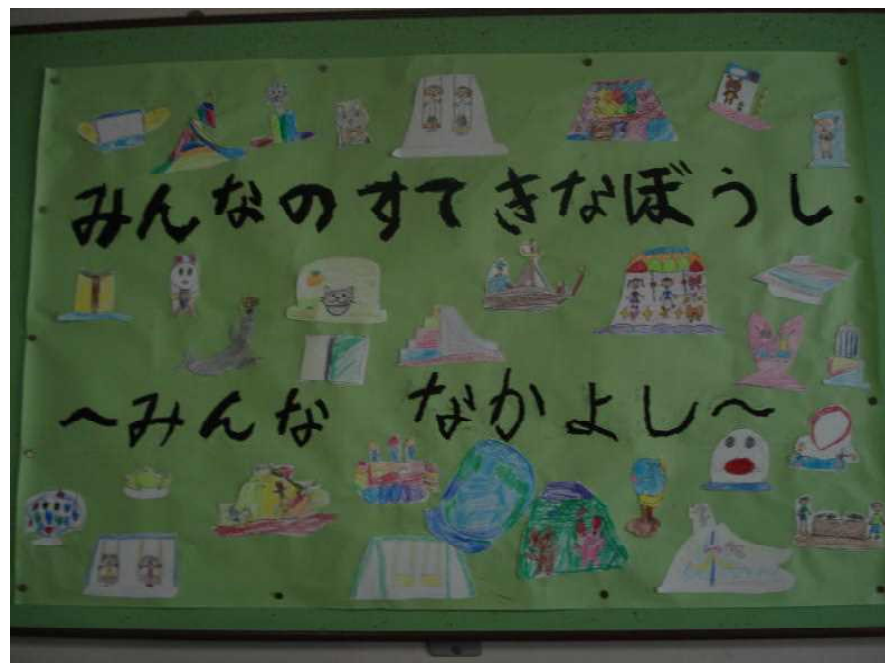 みんなのすてきなぼうし
～みんな なかよし～